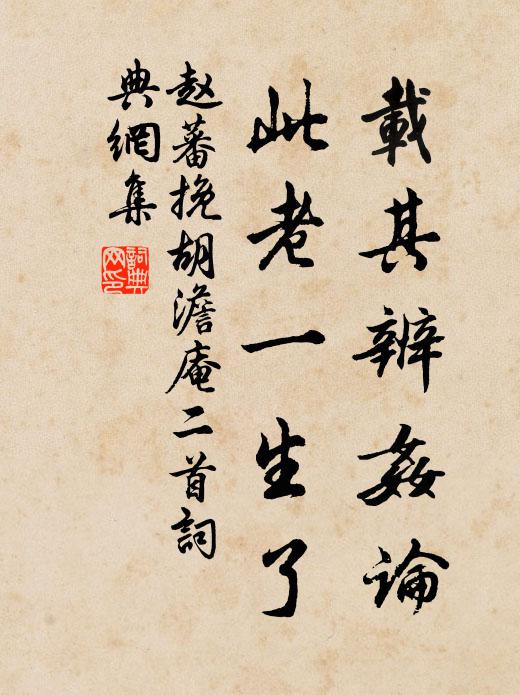 載其辨姦論
此老一生了
赵蕃挽胡澹庵二首詞
典網集
詞典
网印